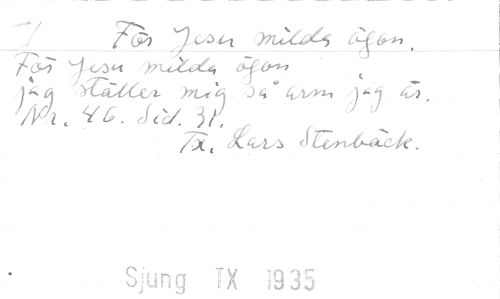 För Jesu milda ögon.
För Jesu milda ögon
jag ställer mig så arm jag är.
Nr. 46. Sid. 31.
Tx. Lars Stenbäck.
Sjung TX 1935